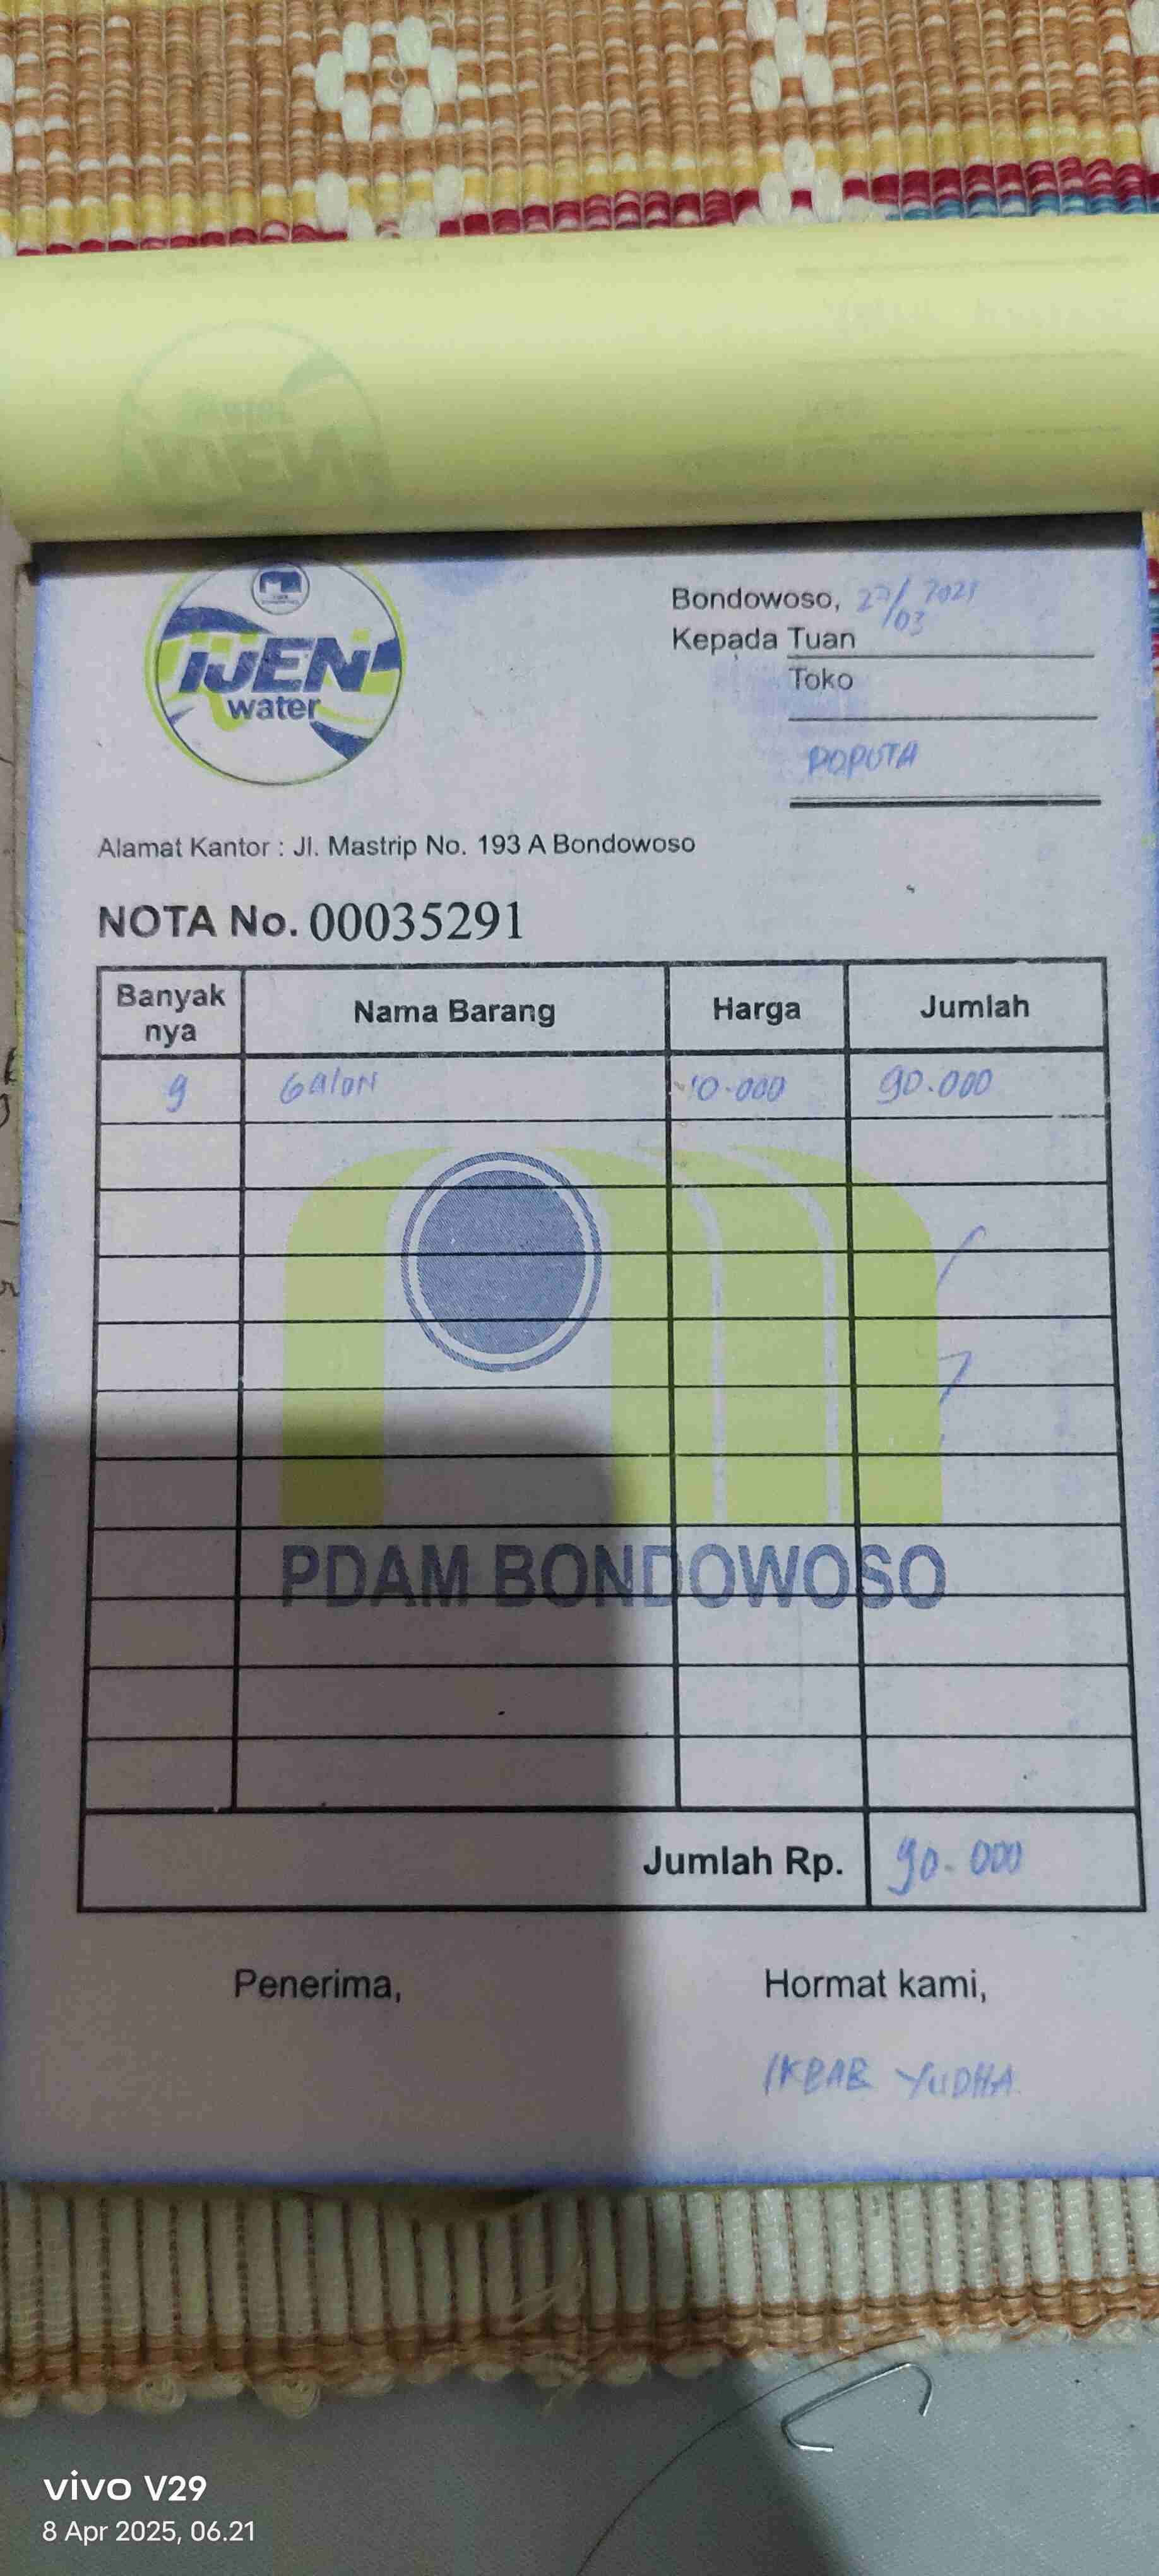 IJEN
water
Bondowoso, 27/03 2025
Kepada Tuan
Toko
POPUTA
Alamat Kantor : Jl. Mastrip No. 193 A Bondowoso
NOTA No. 00035291
Banyak nya Nama Barang Harga Jumlah
9 GAlON 10.000 90.000
PDAM BONDOWOSO
Jumlah Rp. 90.000
Penerima, Hormat kami,
IKBAB YUDHA
vivo V29
8 Apr 2025, 06.21